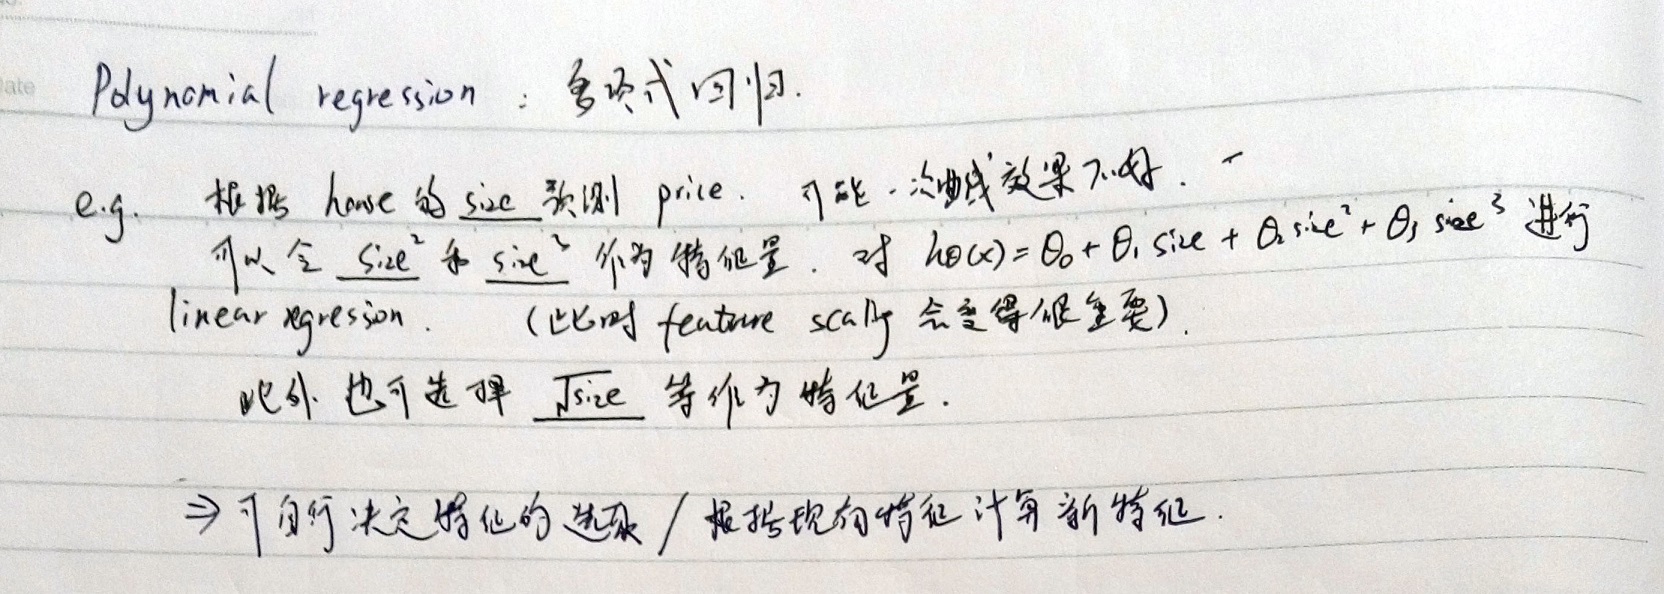 ate
Polynomial regression : 多项式回归.
e.g. 根据 house 的 size 预测 price. 可能一次曲线效果不好.
可以令 size² 和 size³ 作为特征量. 对 hθ(x) = θ₀ + θ₁ size + θ₂ size² + θ₃ size³ 进行
linear regression. (此时 feature scaling 会变得很重要).
此外 也可选择 √size 等作为特征量.
⇒ 可自行决定特征的选取 / 根据现有特征计算新特征.